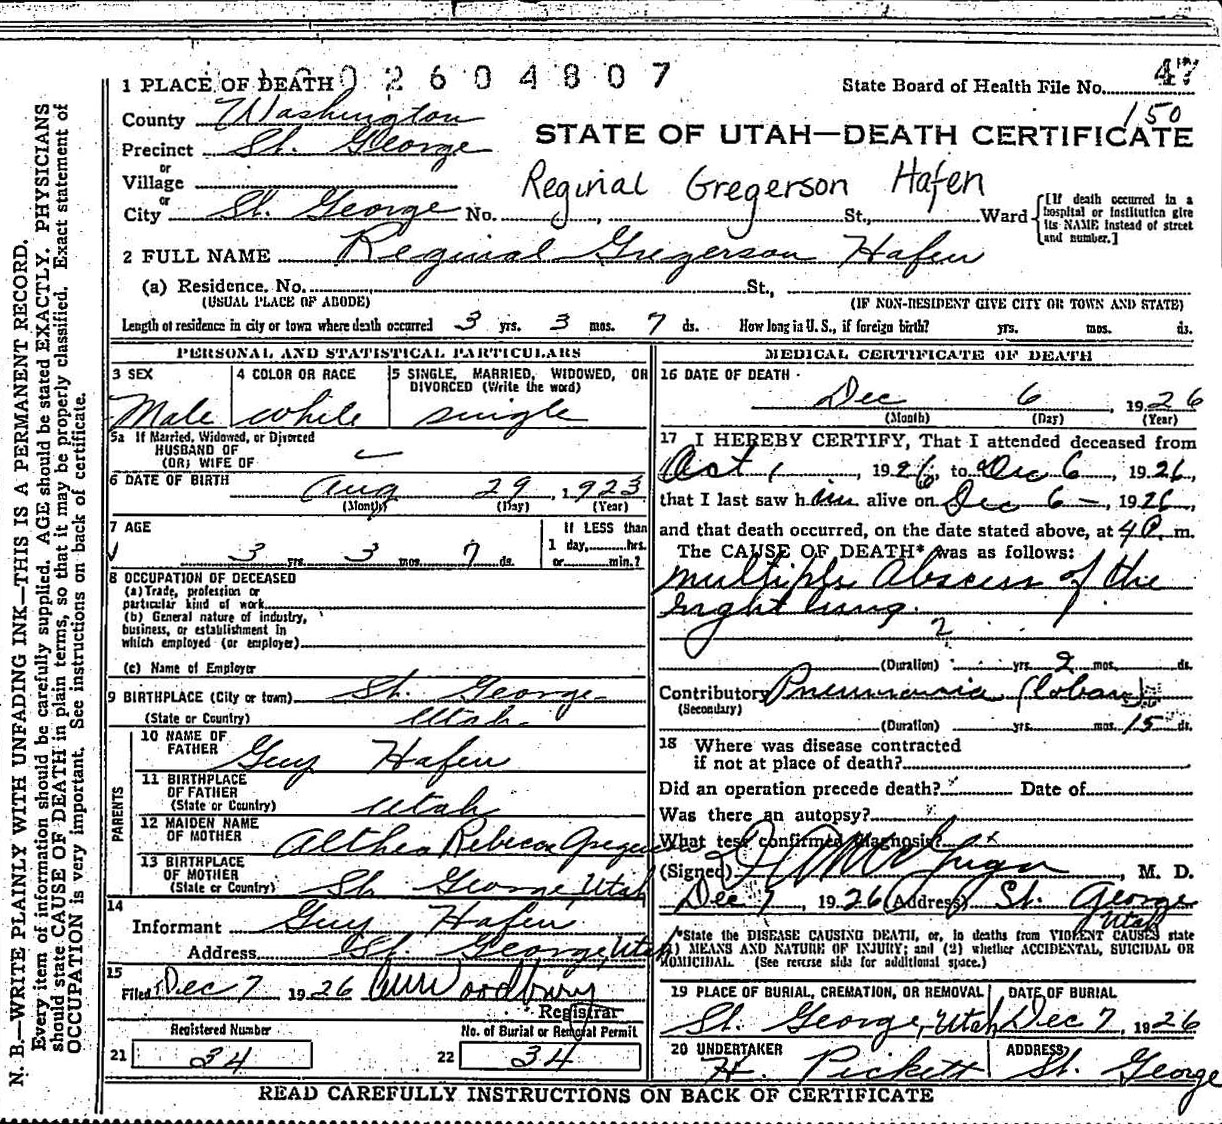 N. B.—WRITE PLAINLY WITH UNFADING INK—THIS IS A PERMANENT RECORD.
Every item of information should be carefully supplied. AGE should be stated EXACTLY. PHYSICIANS
should state CAUSE OF DEATH in plain terms, so that it may be properly classified. Exact statement of
OCCUPATION is very important. See instructions on back of certificate.
1 PLACE OF DEATH
02604807
State Board of Health File No. 47
150
County Washington
STATE OF UTAH—DEATH CERTIFICATE
Precinct St. George
or
Village
Reginal Gregerson Hafen
or
City St. George No. St., Ward
[If death occurred in a
hospital or institution give
its NAME instead of street
and number.]
2 FULL NAME Reginal Gregerson Hafen
(a) Residence. No. St.,
(USUAL PLACE OF ABODE) (IF NON-RESIDENT GIVE CITY OR TOWN AND STATE)
Length of residence in city or town where death occurred 3 yrs. 3 mos. 7 ds. How long in U. S., if foreign birth? yrs. mos. ds.
PERSONAL AND STATISTICAL PARTICULARS
3 SEX
Male
4 COLOR OR RACE
white
5 SINGLE, MARRIED, WIDOWED, OR
DIVORCED (Write the word)
single
5a If Married, Widowed, or Divorced
HUSBAND OF
(OR) WIFE OF
6 DATE OF BIRTH Aug 29, 1923
(Month) (Day) (Year)
7 AGE
3 yrs. 3 mos. 7 ds.
If LESS than
1 day, hrs.
or min.?
8 OCCUPATION OF DECEASED
(a) Trade, profession or
particular kind of work
(b) General nature of industry,
business, or establishment in
which employed (or employer)
(c) Name of Employer
9 BIRTHPLACE (City or town) St. George
(State or Country) Utah
PARENTS
10 NAME OF
FATHER Guy Hafen
11 BIRTHPLACE
OF FATHER
(State or Country) Utah
12 MAIDEN NAME
OF MOTHER Althea Rebecca
13 BIRTHPLACE
OF MOTHER
(State or Country) St. George, Utah
14
Informant Guy Hafen
Address St. George, Utah
15
Filed Dec 7 1926 Woodbury
Registrar
Registered Number
21 34
No. of Burial or Removal Permit
22 34
MEDICAL CERTIFICATE OF DEATH
16 DATE OF DEATH
Dec 6, 1926
(Month) (Day) (Year)
17 I HEREBY CERTIFY, That I attended deceased from
Oct 1, 1926, to Dec 6, 1926,
that I last saw him alive on Dec 6—, 1926,
and that death occurred, on the date stated above, at 4 P. m.
The CAUSE OF DEATH* was as follows:
Multiple Abscess of the
right lung.
2
(Duration) yrs. 2 mos. ds.
Contributory Pneumonia (Lobar)
(Secondary)
(Duration) yrs. mos. 15 ds.
18 Where was disease contracted
if not at place of death?
Did an operation precede death? Date of
Was there an autopsy?
What test confirmed diagnosis?
(Signed) , M. D.
Dec 7, 1926 (Address) St. George
Utah
*State the DISEASE CAUSING DEATH, or, in deaths from VIOLENT CAUSES state
(1) MEANS AND NATURE OF INJURY; and (2) whether ACCIDENTAL, SUICIDAL OR
HOMICIDAL. (See reverse side for additional space.)
19 PLACE OF BURIAL, CREMATION, OR REMOVAL
St. George, Utah
DATE OF BURIAL
Dec 7, 1926
20 UNDERTAKER
H. Pickett
ADDRESS
St. George
READ CAREFULLY INSTRUCTIONS ON BACK OF CERTIFICATE